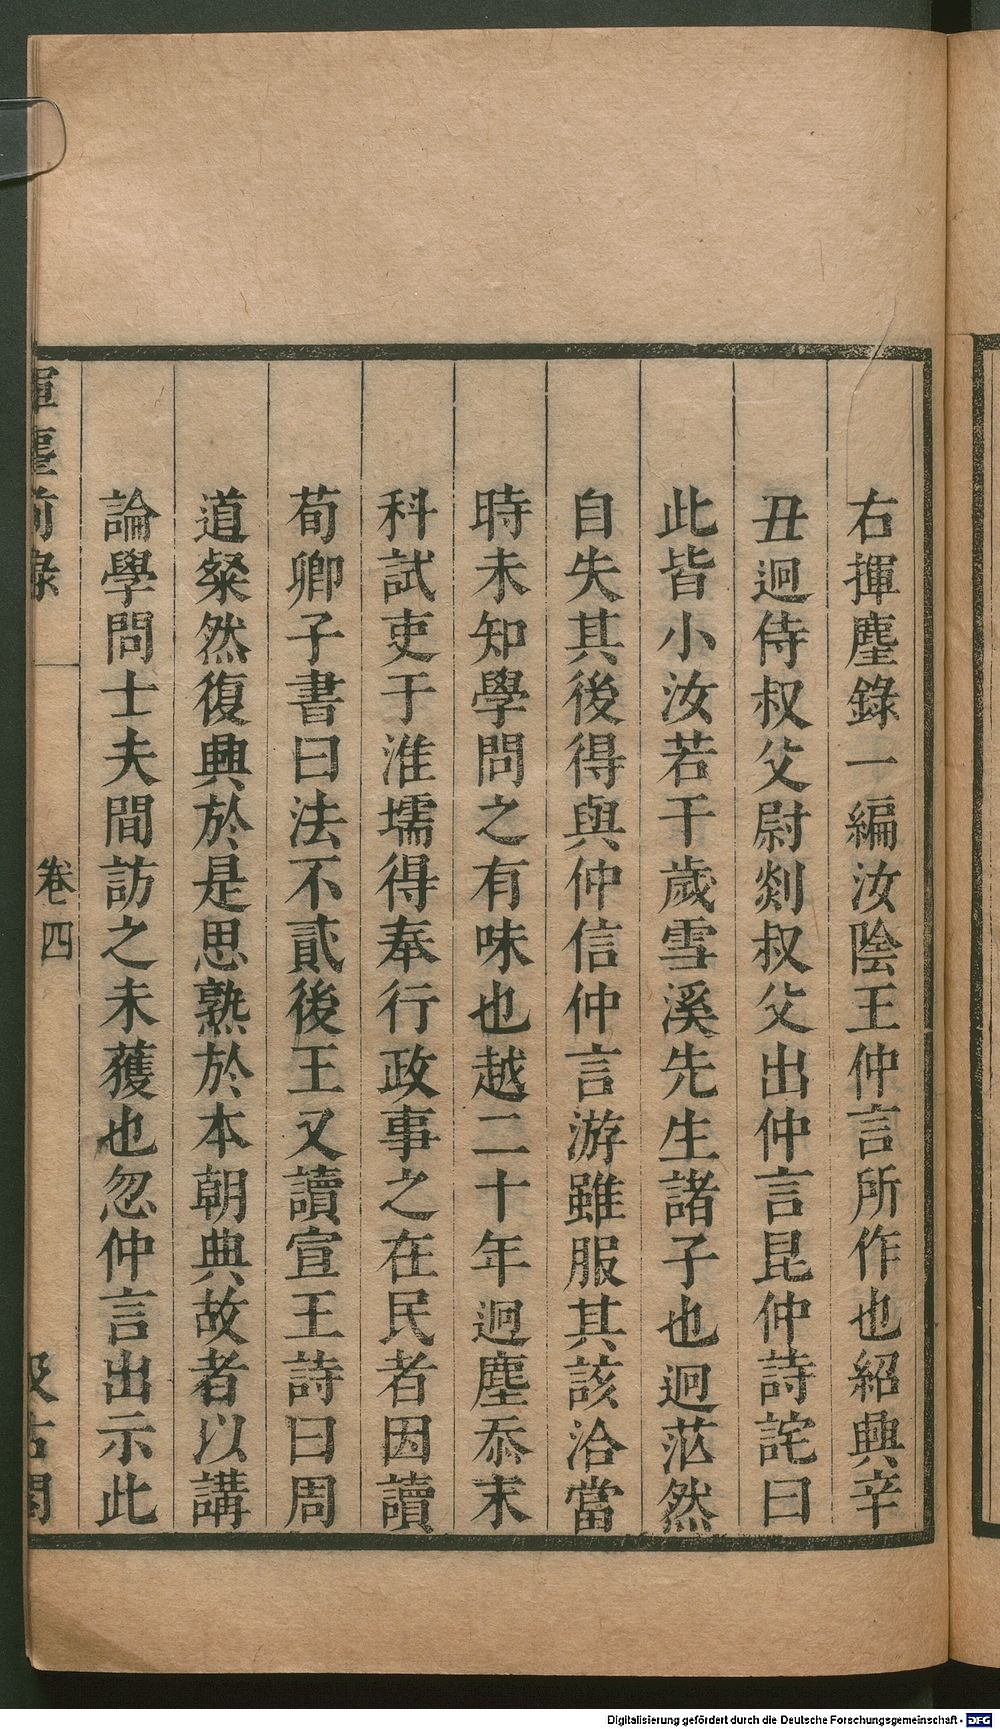 右揮麈錄一編汝陰王仲言所作也紹興辛
丑迥侍叔父尉剡叔父出仲言昆仲詩詫曰
此皆小汝若干歲雪溪先生諸子也迥茫然
自失其後得與仲信仲言游雖服其該洽當
時未知學問之有味也越二十年迥塵忝末
科試吏于淮壖得奉行政事之在民者因讀
荀卿子書曰法不貳後王又讀宣王詩曰周
道粲然復興於是思熟於本朝典故者以講
論學問士夫間訪之未獲也忽仲言出示此
揮麈前錄
卷四
汲古閣
Digitalisierung gefördert durch die Deutsche Forschungsgemeinschaft - DFG